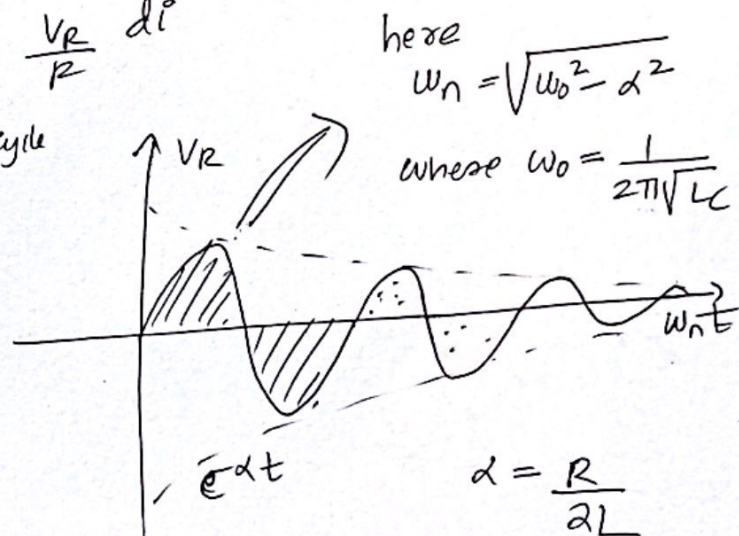 V_R/R di
here
ω_n = √(ω_0² - α²)
V_R
where ω_0 = 1/(2π√LC)
ω_n t
e^-αt
α = R/2L